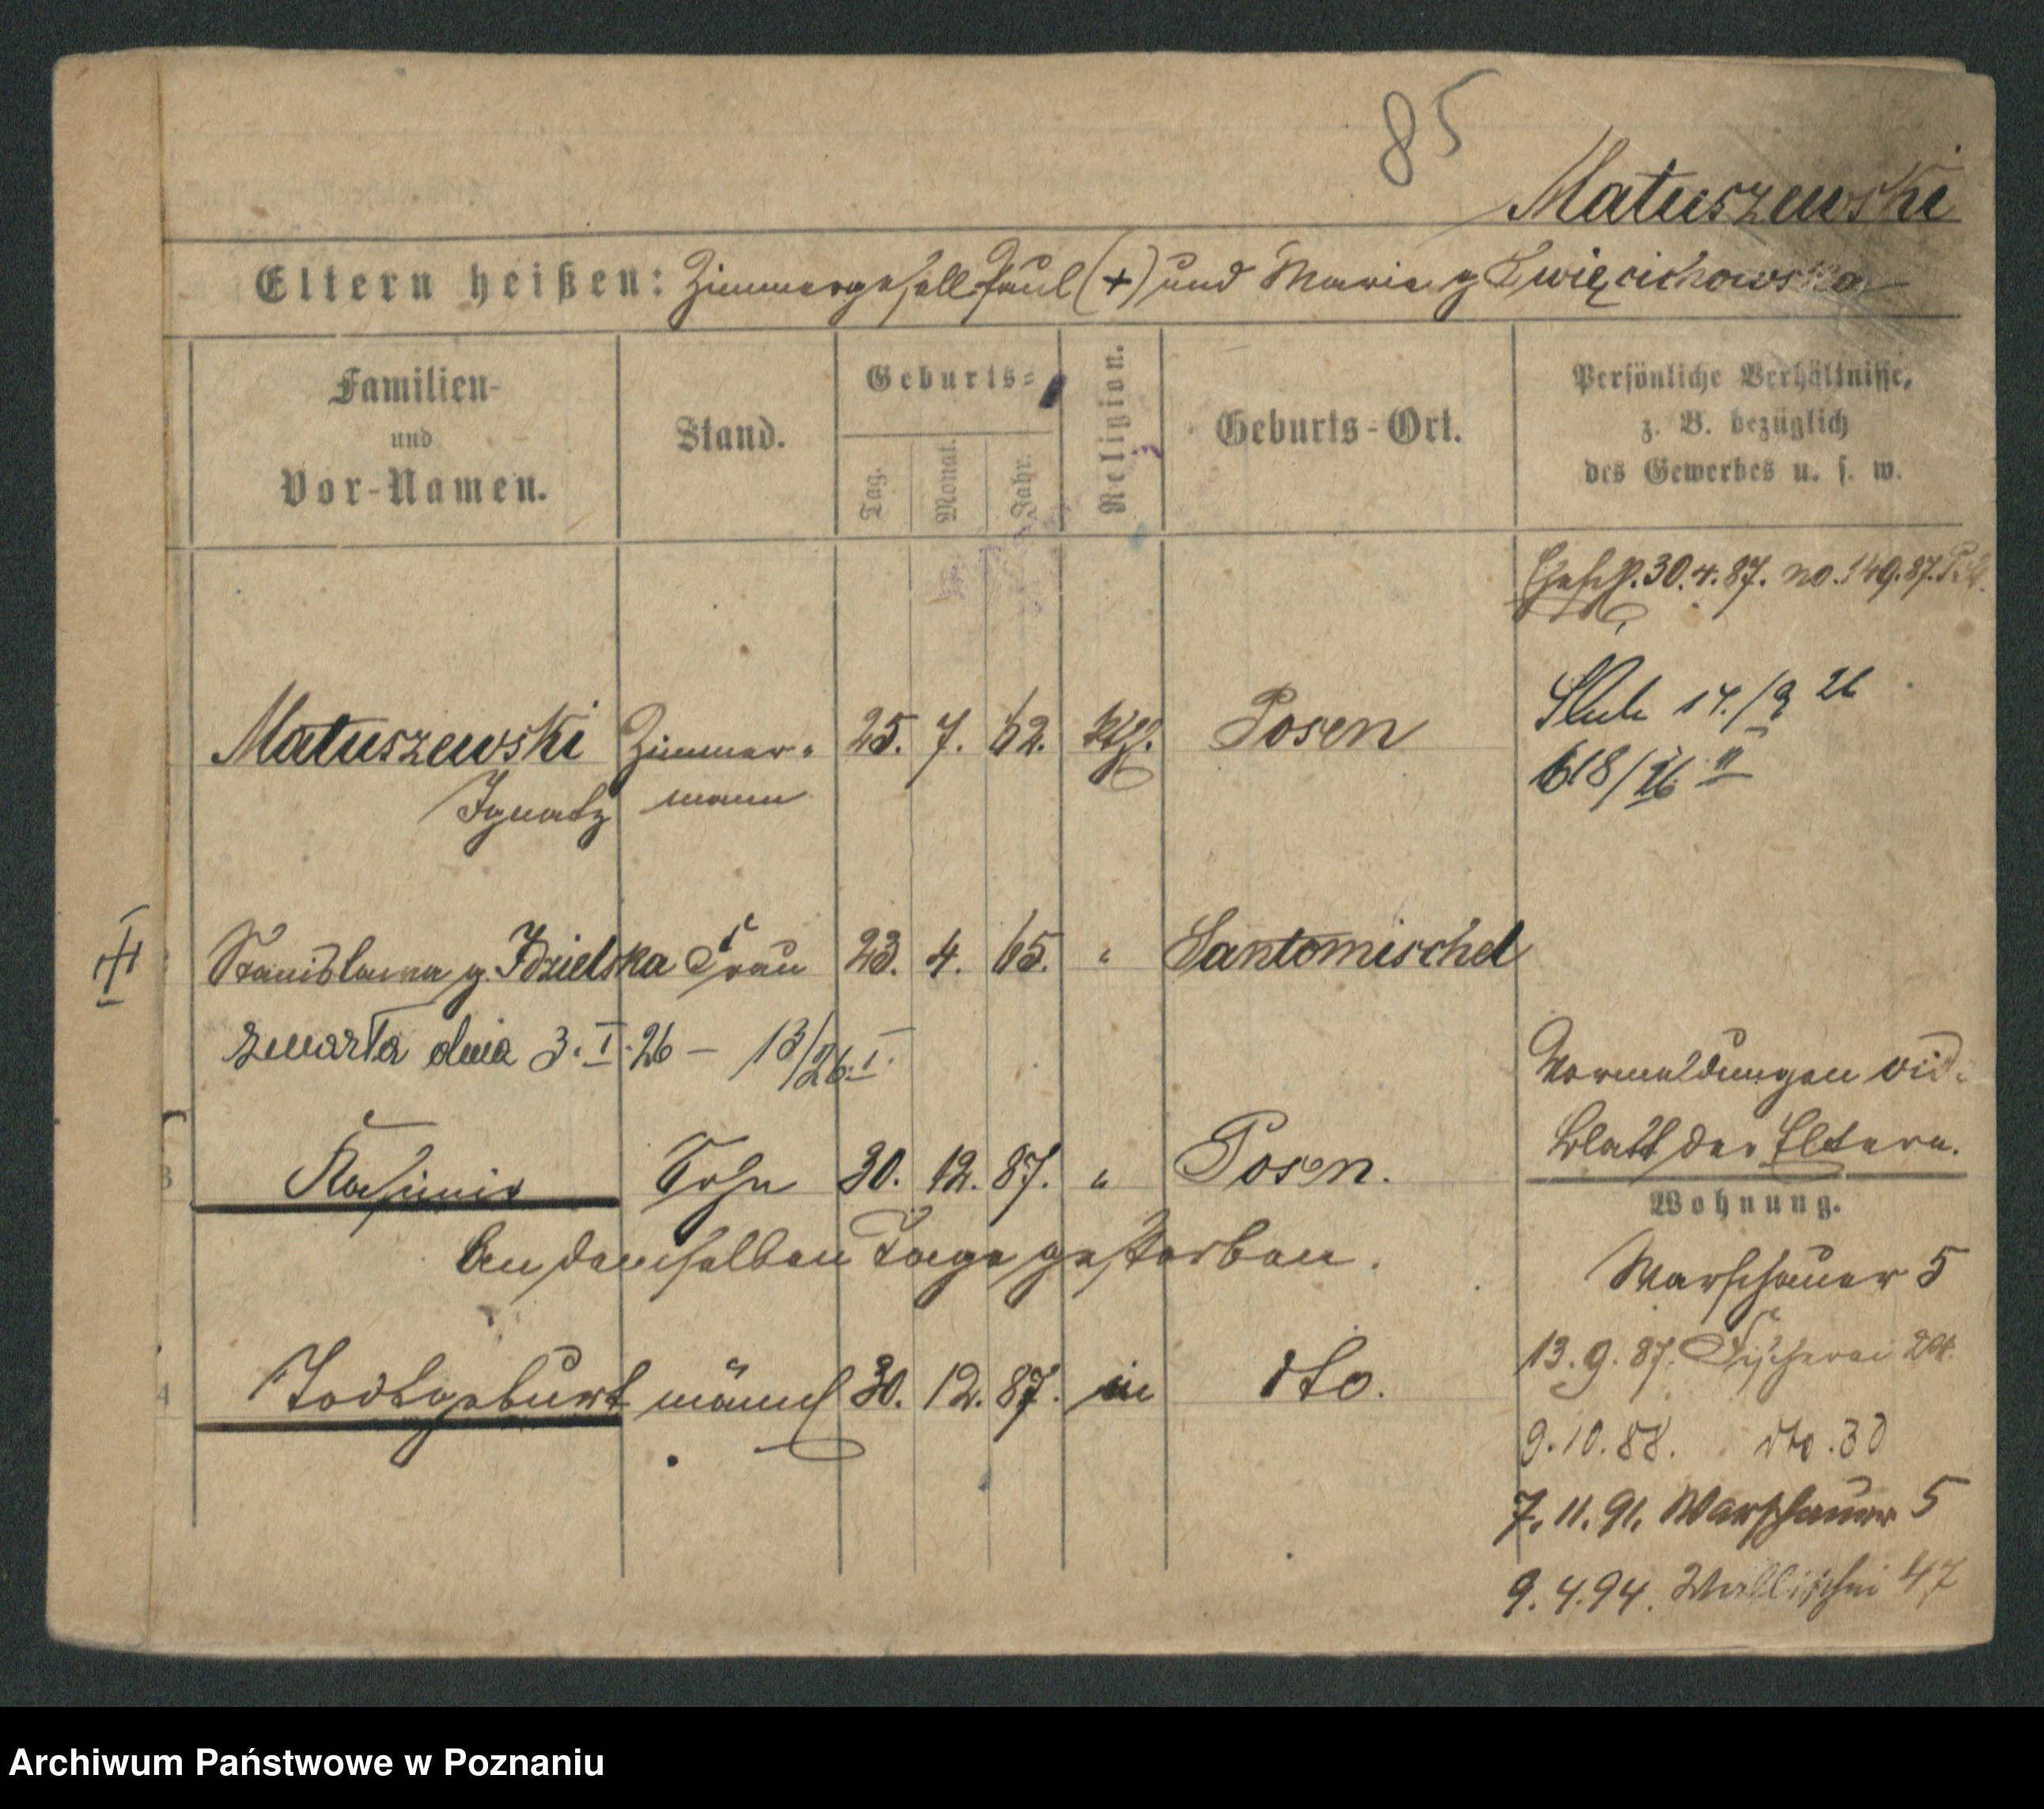 85
Matuszewski
Eltern heißen: Zimmergesell Paul (+) und Marie g Zwięcichowska
Familien-
und
Vor-Namen.
Stand.
Geburts-
Tag.
Monat.
Jahr.
Religion.
Geburts-Ort.
Persönliche Verhältnisse,
z. B. bezüglich
des Gewerbes u. s. w.
30.4.87. no. 149.87.
Matuszewski Zimmer- 25. 7. 62. kth. Posen
Ignatz mann
14./2 26
618/26 II
Stanislawa g. Idzielska Frau 23. 4. 65. " Santomischel
zmarła dnia 3. I. 26 – 13/26. I.
Vormeldungen vid.
Blatt der Eltern.
3
Kasimir Sohn 30. 12. 87. " Posen.
An demselben Tage gestorben.
4
Todtgeburt männl 30. 12. 87. in dto.
Wohnung.
Warschauer 5
13.9.87. Fischerei
9.10.88. dto. 30
7.11.91. Warschauer 5
9.4.94. Wallischei 47
Archiwum Państwowe w Poznaniu